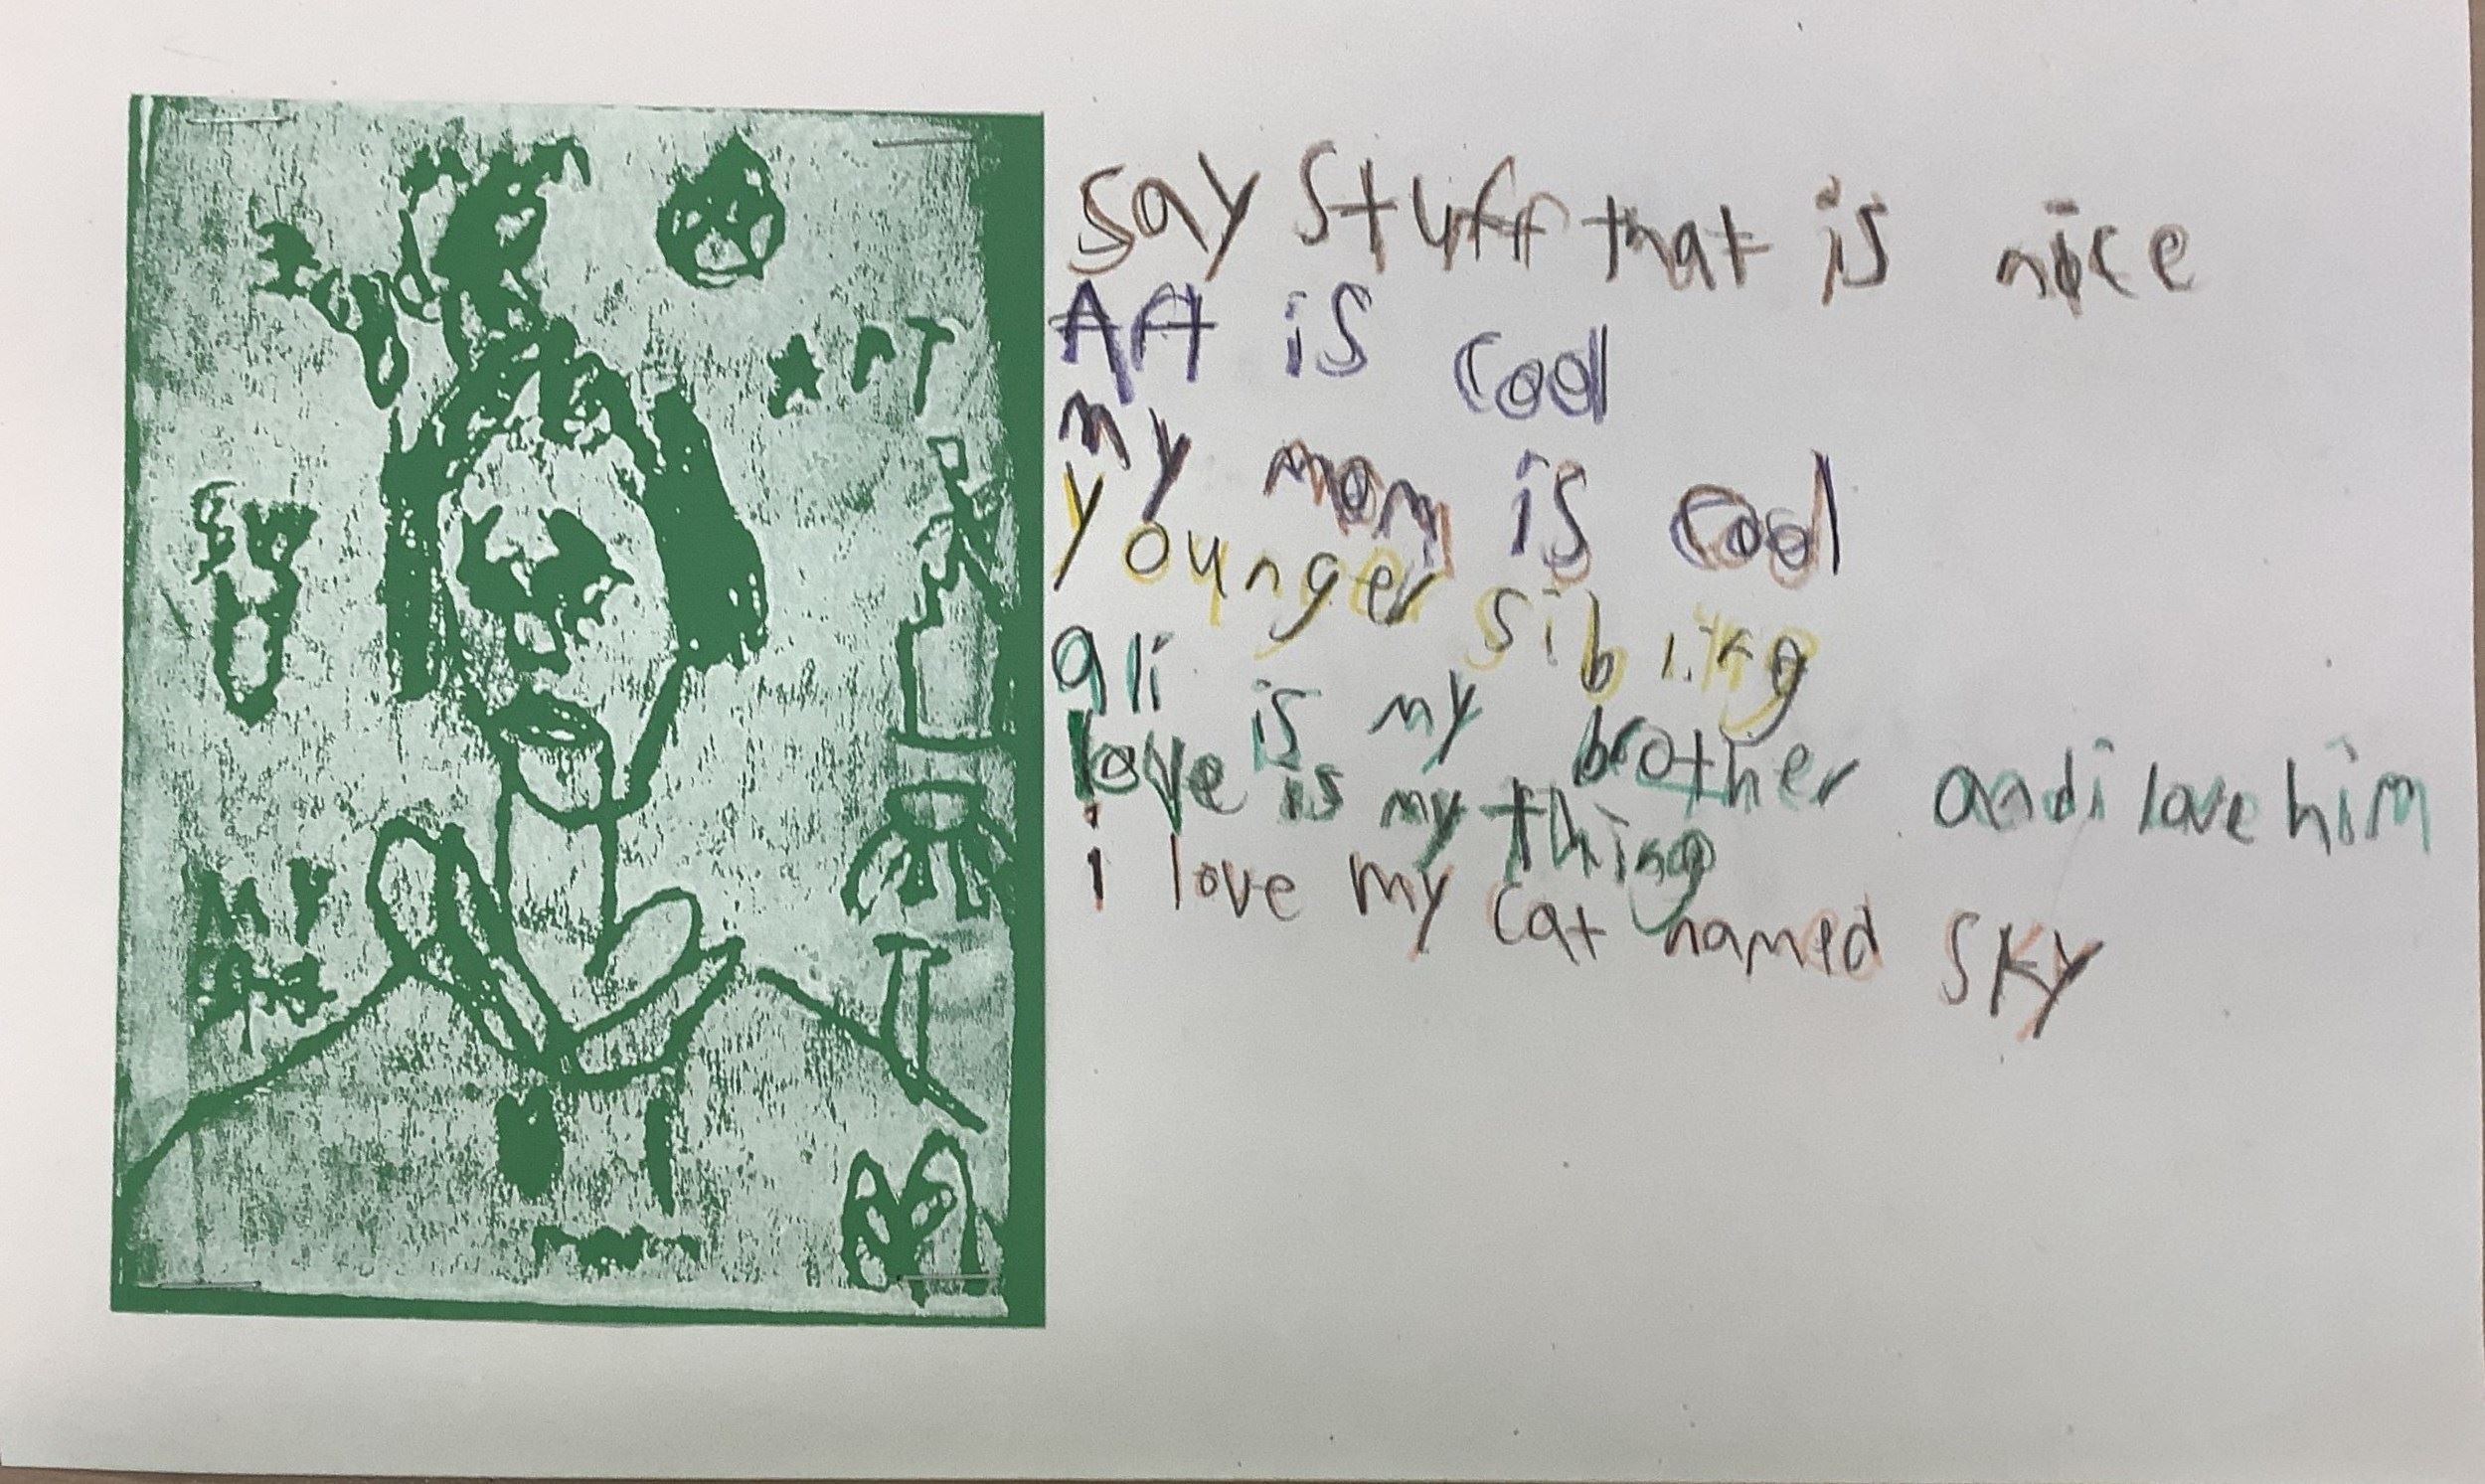 say stuff that is nice
Art is cool
my mom is cool
younger sibling
ali is my brother and i love him
love is my thing
i love my cat named sky
ART
MY